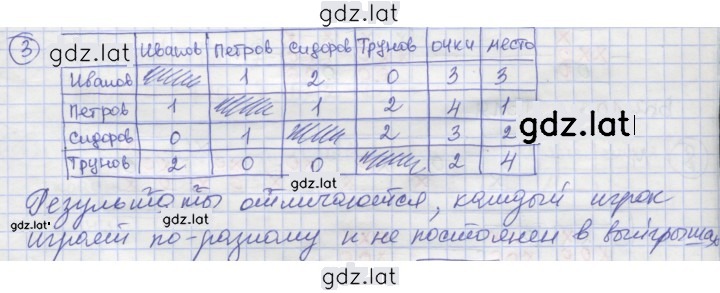 gdz.lat
3 Иванов Петров Сидоров Трунов очки место
gdz.lat
Иванов 1 2 0 3 3
Петров 1 1 2 4 1
gdz.lat
Сидоров 0 1 2 3 2
Трунов 2 0 0 2 4
gdz.lat
Результаты отличаются, каждый игрок
gdz.lat gdz.lat
играет по-разному и не постоянен в выигрышах
gdz.lat